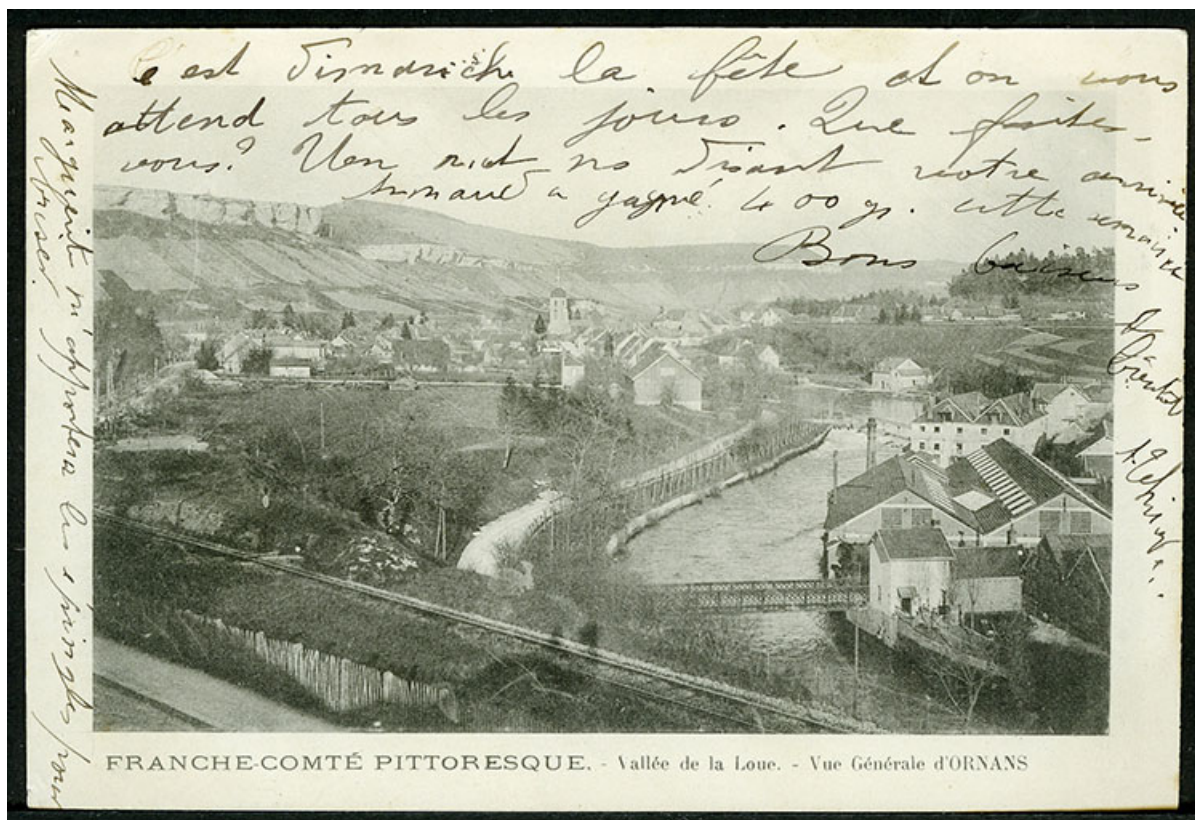 C'est Dimanche la fête et on vous
attend tous les jours. Que faites-
vous? Un mot ns disant votre arrivée
a gagné 400 gr. cette semaine
Bons baisers
Marguerite m'apportera les épingles pour
friser.
FRANCHE-COMTÉ PITTORESQUE. - Vallée de la Loue. - Vue Générale d'ORNANS